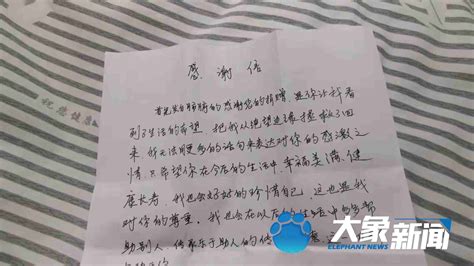 感谢信
首先发自肺腑的感谢您的捐赠,是你让我看
到了生活的希望,把我从绝望边缘拯救了回
来,所无法用更多的语句来表达对你的感激之
情,只希望你在今后的生活中,幸福美满、健
康长寿,我也会好好的珍惜自己,这也是我
对你的尊重,我也会在以后的生活中
助别人,传承乐于助人的传
祝您健康
大象新闻
ELEPHANT NEWS